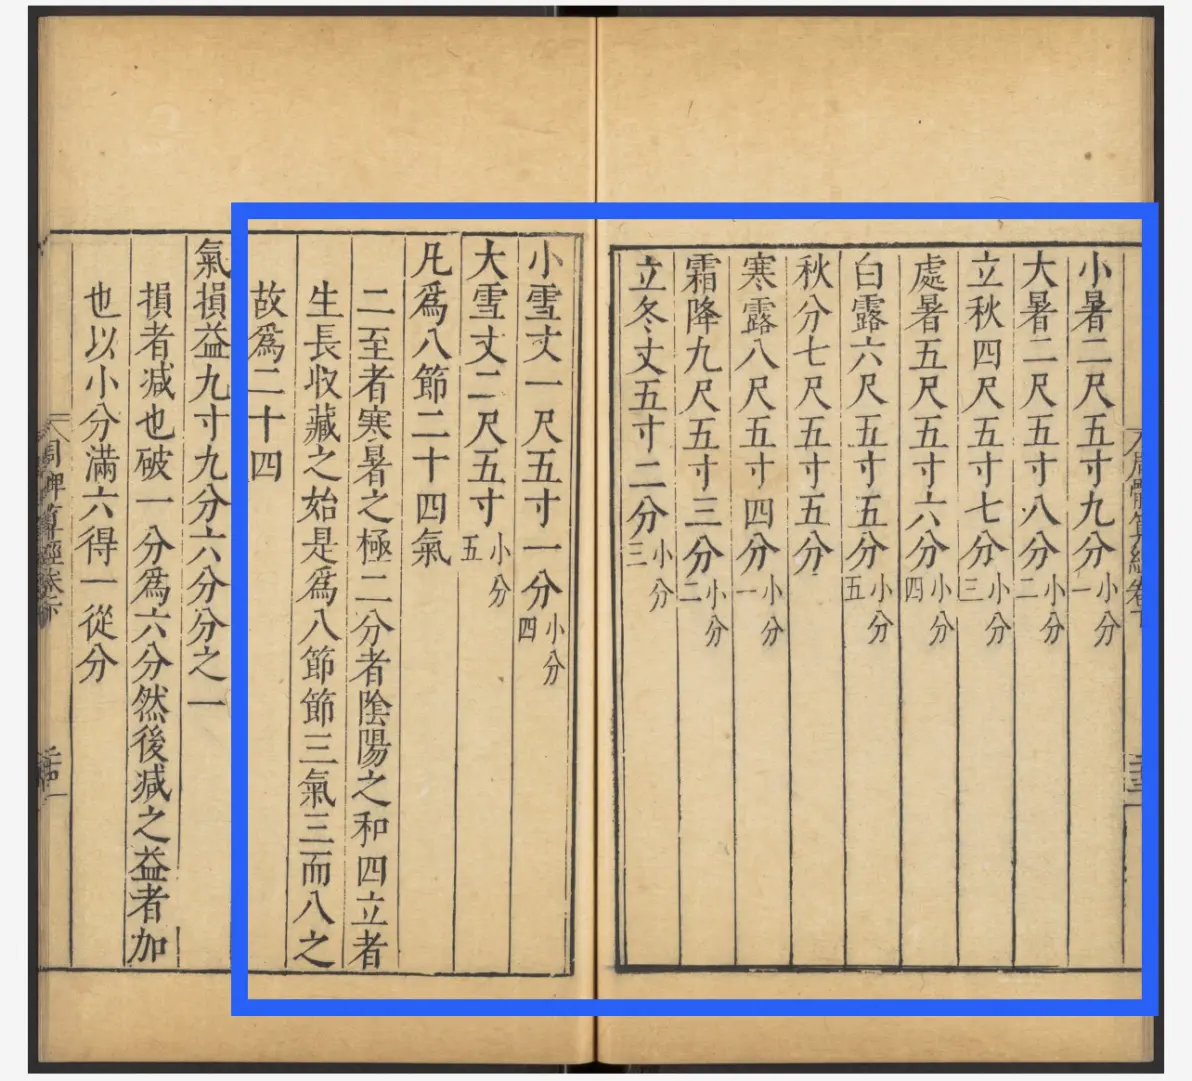 小暑二尺五寸九分小分一
大暑二尺五寸八分小分二
立秋四尺五寸七分小分三
處暑五尺五寸六分小分四
白露六尺五寸五分小分五
秋分七尺五寸五分
寒露八尺五寸四分小分一
霜降九尺五寸三分小分二
立冬丈五寸二分小分三
小雪丈一尺五寸一分小分四
大雪丈二尺五寸小分五
凡爲八節二十四氣
二至者寒暑之極二分者陰陽之和四立者
生長收藏之始是爲八節節三氣三而八之
故爲二十四
氣損益九寸九分六分分之一
損者減也破一分爲六分然後減之益者加
也以小分滿六得一從分
周髀算經卷下